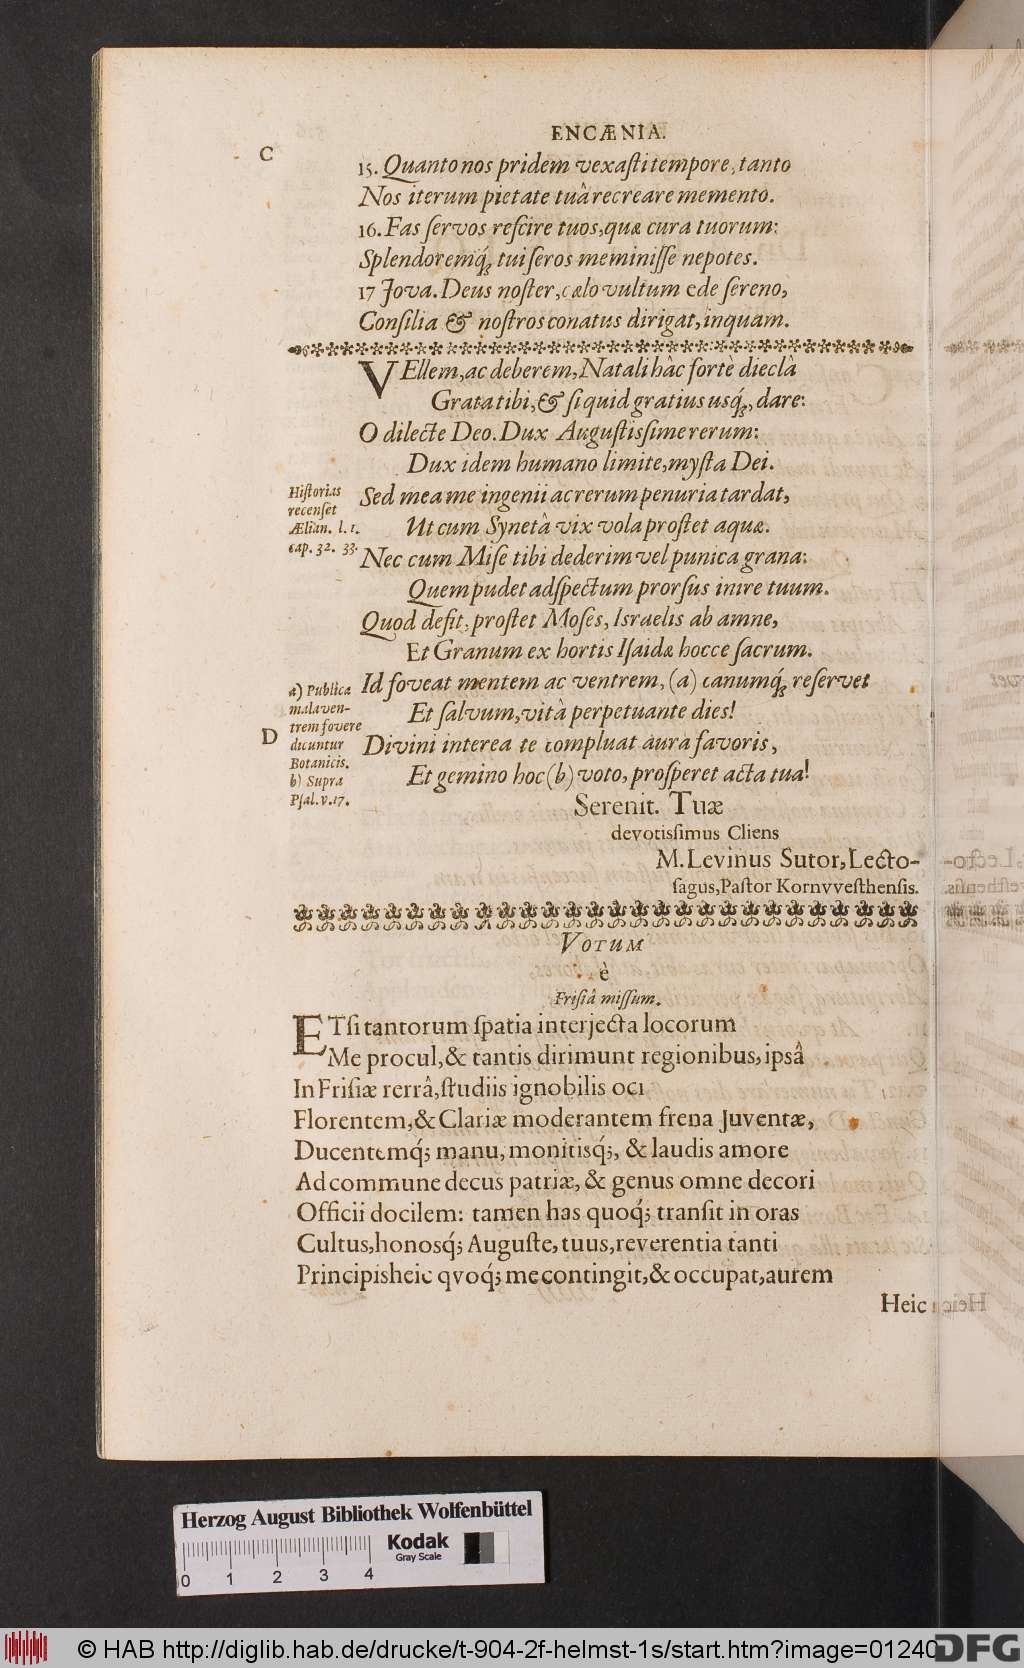 ENCÆNIA.
C
15. Quanto nos pridem vexaſti tempore, tanto
Nos iterum pietate tuâ recreare memento.
16. Fas ſervos reſcire tuos, quæ cura tuorum:
Splendoremq́; tui ſeros meminiſſe nepotes.
17 Jova. Deus noſter, cælo vultum ede ſereno,
Conſilia & noſtros conatus dirigat, inquam.
VEllem, ac deberem, Natali hâc fortè dieclâ
Grata tibi, & ſi quid gratius usq́;, dare:
O dilecte Deo. Dux Auguſtisſime rerum:
Dux idem humano limite, myſta Dei.
Hiſtorias
recenſet
Ælian. l. 1.
cap. 32. 33.
Sed mea me ingenii ac rerum penuria tardat,
Ut cum Synetâ vix vola proſtet aquæ.
Nec cum Miſe tibi dederim vel punica grana:
Quem pudet adſpectum prorſus inire tuum.
Quod deſit, proſtet Moſes, Israelis ab amne,
Et Granum ex hortis Iſaidæ hocce ſacrum.
a) Publica
mala ven-
trem fovere
dicuntur
Botanicis.
b) Supra
Pſal. v. 17.
Id foveat mentem ac ventrem, (a) canumq́; reſervet
Et ſalvum, vitâ perpetuante dies!
D
Divini interea te compluat aura favoris,
Et gemino hoc (b) voto, proſperet acta tua!
Serenit. Tuæ
devotisſimus Cliens
M. Levinus Sutor, Lecto-
ſagus, Paſtor Kornvveſthenſis.
VOTUM
è
Friſiâ miſſum.
ETſi tantorum ſpatia interjecta locorum
Me procul, & tantis dirimunt regionibus, ipsâ
In Friſiæ terrâ, ſtudiis ignobilis oci
Florentem, & Clariæ moderantem frena Juventæ,
Ducentemq́; manu, monitisq́;, & laudis amore
Ad commune decus patriæ, & genus omne decori
Officii docilem: tamen has quoq́; tranſit in oras
Cultus, honosq́; Auguſte, tuus, reverentia tanti
Principis heic qvoq́; me contingit, & occupat, aurem
Heic
Herzog August Bibliothek Wolfenbüttel
Kodak
Gray Scale
0 1 2 3 4
© HAB http://diglib.hab.de/drucke/t-904-2f-helmst-1s/start.htm?image=01240
DFG